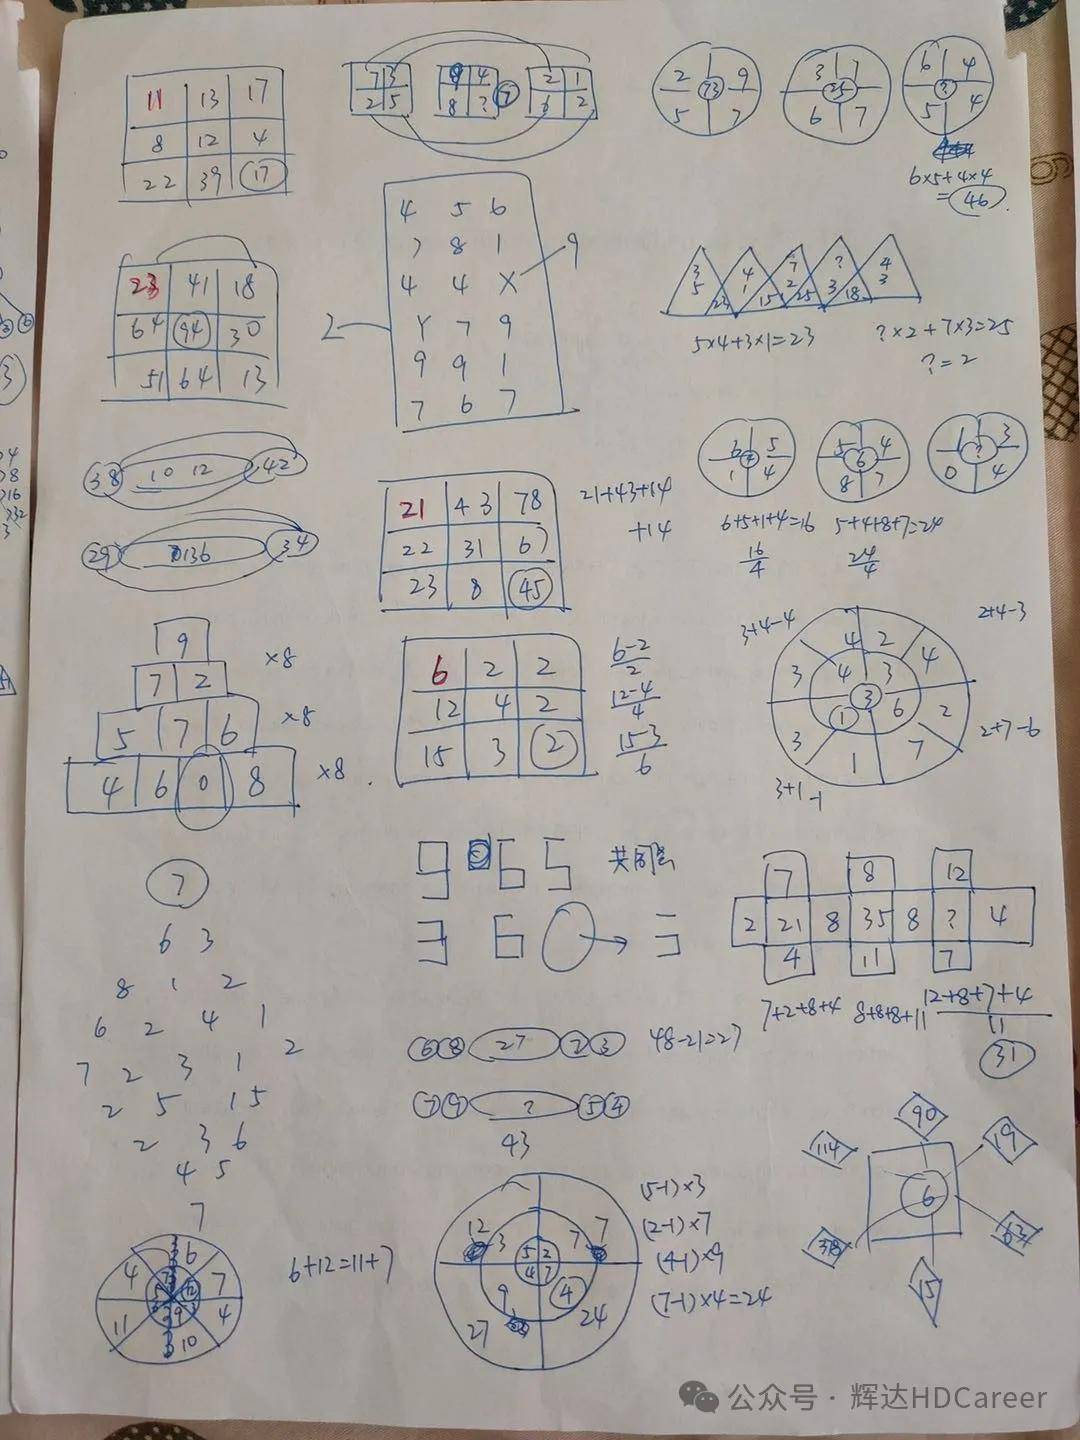 11 13 17
8 12 4
22 39 17
7 3
2 5
4
8 ? 7
2 1
3 2
2 9
73
5 7
3 7
6 7
6 4
?
5 4
6×5+4×4
=46
4 5 6
7 8 1
4 4 X 9
2 Y 7 9
9 9 1
7 6 7
23 41 18
64 94 30
51 64 13
3 4 7 ? 4
5 1 2 3 3
23 15 25 18
5×4+3×1=23
?×2+7×3=25
?=2
38 10 12 42
29 136 34
21 43 78
22 31 67
23 8 45
21+43+14
+14
6 5
1 4
5 4
6
8 7
1 3
?
0 4
6+5+1+4=16
5+4+8+7=24
16
4
24
4
9
7 2 ×8
5 7 6 ×8
4 6 0 8 ×8
6 2 2
12 4 2
15 3 2
6-2
2
12-4
4
15-3
6
3+4-4
2+4-3
4 2
3 4 3 4
3
3 1 6 2
1 7
2+7-6
3+1-1
9 6 5
3 6
7 8 12
2 21 8 35 8 ? 4
4 11 7
7+2+8+4
8+8+8+11
12+8+7+4
11
31
7
6 3
8 1 2
6 2 4 1
7 2 3 1 2
2 5 1 5
2 3 6
4 5
7
6 8 27 2 3
48-21=27
7 9 ? 5 4
43
90
114 19
6
38 63
15
6
4 7
12
11 9 4
10
6+12=11+7
12 7
3 7
5 2
4 7
9 4
27 24
(5-1)×3
(2-1)×7
(4-1)×9
(7-1)×4=24
公众号·辉达HDCareer